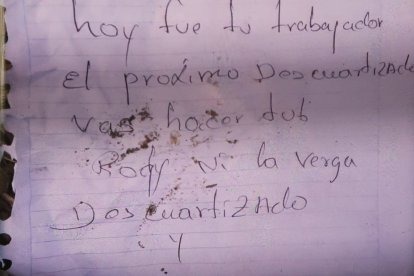 hoy fue tu trabajador
El proximo Descuartizado
vas hacer tu
Rody Ni la verga
Descuartizado
Y